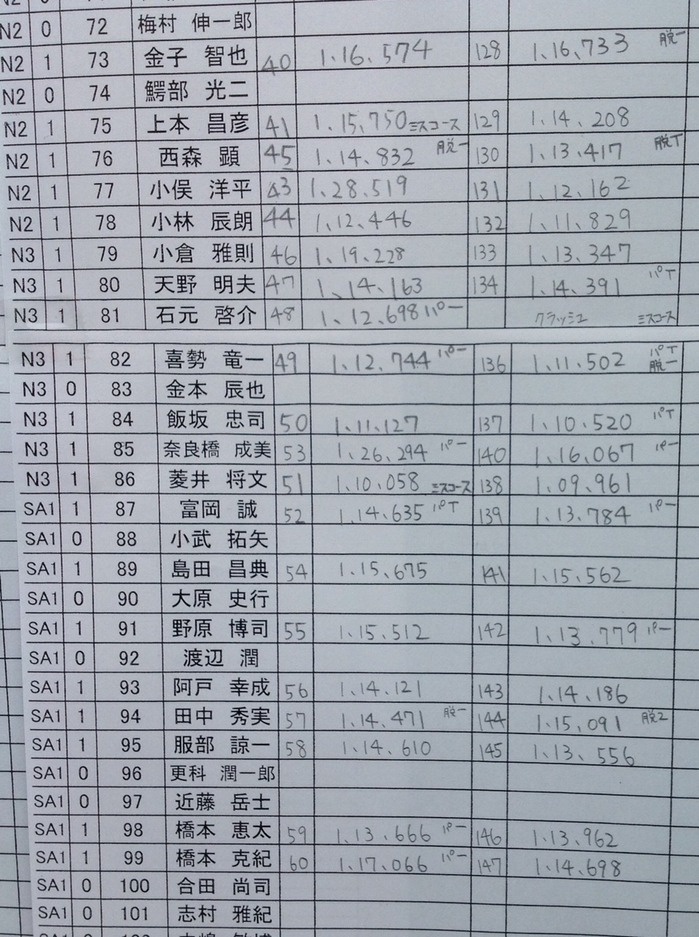 N2 0 72 梅村 伸一郎
N2 1 73 金子 智也 40 1.16.574 128 1.16.733 脱一
N2 0 74 鰐部 光二
N2 1 75 上本 昌彦 41 1.15.750 ミスコース 129 1.14.208
N2 1 76 西森 顕 45 1.14.832 脱一 130 1.13.417 脱T
N2 1 77 小俣 洋平 43 1.28.519 131 1.12.162
N2 1 78 小林 辰朗 44 1.12.446 132 1.11.829
N3 1 79 小倉 雅則 46 1.19.228 133 1.13.347
N3 1 80 天野 明夫 47 1.14.163 134 1.14.391 パT
N3 1 81 石元 啓介 48 1.12.698 パー クラッシュ ミスコース
N3 1 82 喜勢 竜一 49 1.12.744 パー 136 1.11.502 パT 脱一
N3 0 83 金本 辰也
N3 1 84 飯坂 忠司 50 1.11.127 137 1.10.520 パT
N3 1 85 奈良橋 成美 53 1.26.294 パー 140 1.16.067 パー
N3 1 86 菱井 将文 51 1.10.058 ミスコース 138 1.09.961
SA1 1 87 富岡 誠 52 1.14.635 パT 139 1.13.784 パー
SA1 0 88 小武 拓矢
SA1 1 89 島田 昌典 54 1.15.675 141 1.15.562
SA1 0 90 大原 史行
SA1 1 91 野原 博司 55 1.15.512 142 1.13.779 パー
SA1 0 92 渡辺 潤
SA1 1 93 阿戸 幸成 56 1.14.121 143 1.14.186
SA1 1 94 田中 秀実 57 1.14.471 脱一 144 1.15.091 脱2
SA1 1 95 服部 諒一 58 1.14.610 145 1.13.556
SA1 0 96 更科 潤一郎
SA1 0 97 近藤 岳士
SA1 1 98 橋本 恵太 59 1.13.666 パー 146 1.13.962
SA1 1 99 橋本 克紀 60 1.17.066 パー 147 1.14.698
SA1 0 100 合田 尚司
SA1 0 101 志村 雅紀